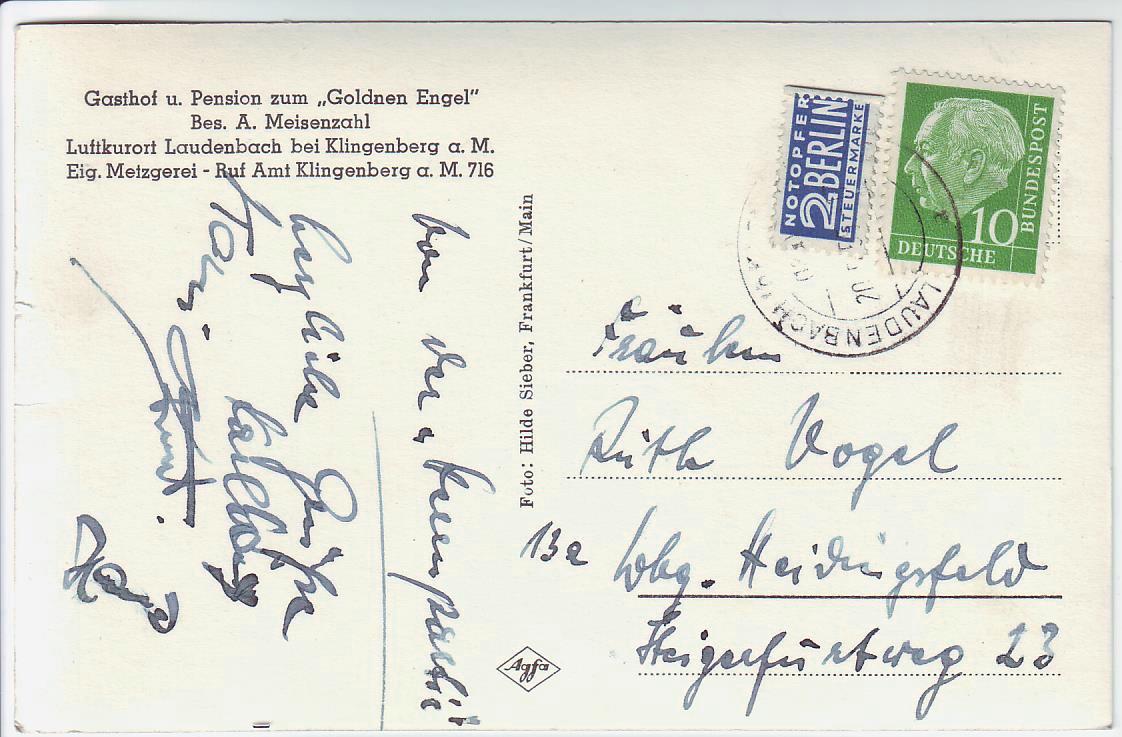 Gasthof u. Pension zum „Goldnen Engel"
Bes. A. Meisenzahl
Luftkurort Laudenbach bei Klingenberg a. M.
Eig. Metzgerei - Ruf Amt Klingenberg a. M. 716
NOTOPFER
2 BERLIN
STEUERMARKE
10
DEUTSCHE
BUNDESPOST
LAUDENBACH
Foto: Hilde Sieber, Frankfurt/Main
von der
herzliche Grüße
Fräulein
Ruth Vogel
13a Wbg. Heidingsfeld
23
Agfa